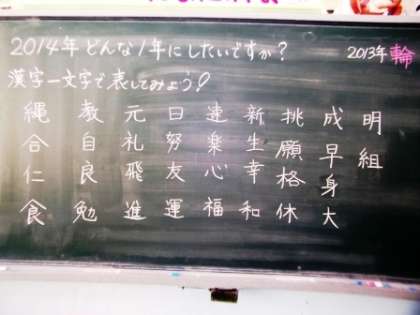 2014年 どんな1年にしたいですか？
2013年 輪
漢字一文字で表してみよう！
縄 教 元 日 達 新 挑 成 明
合 自 礼 努 楽 生 願 早 組
仁 良 飛 友 心 幸 格 身
食 勉 進 運 福 和 休 大